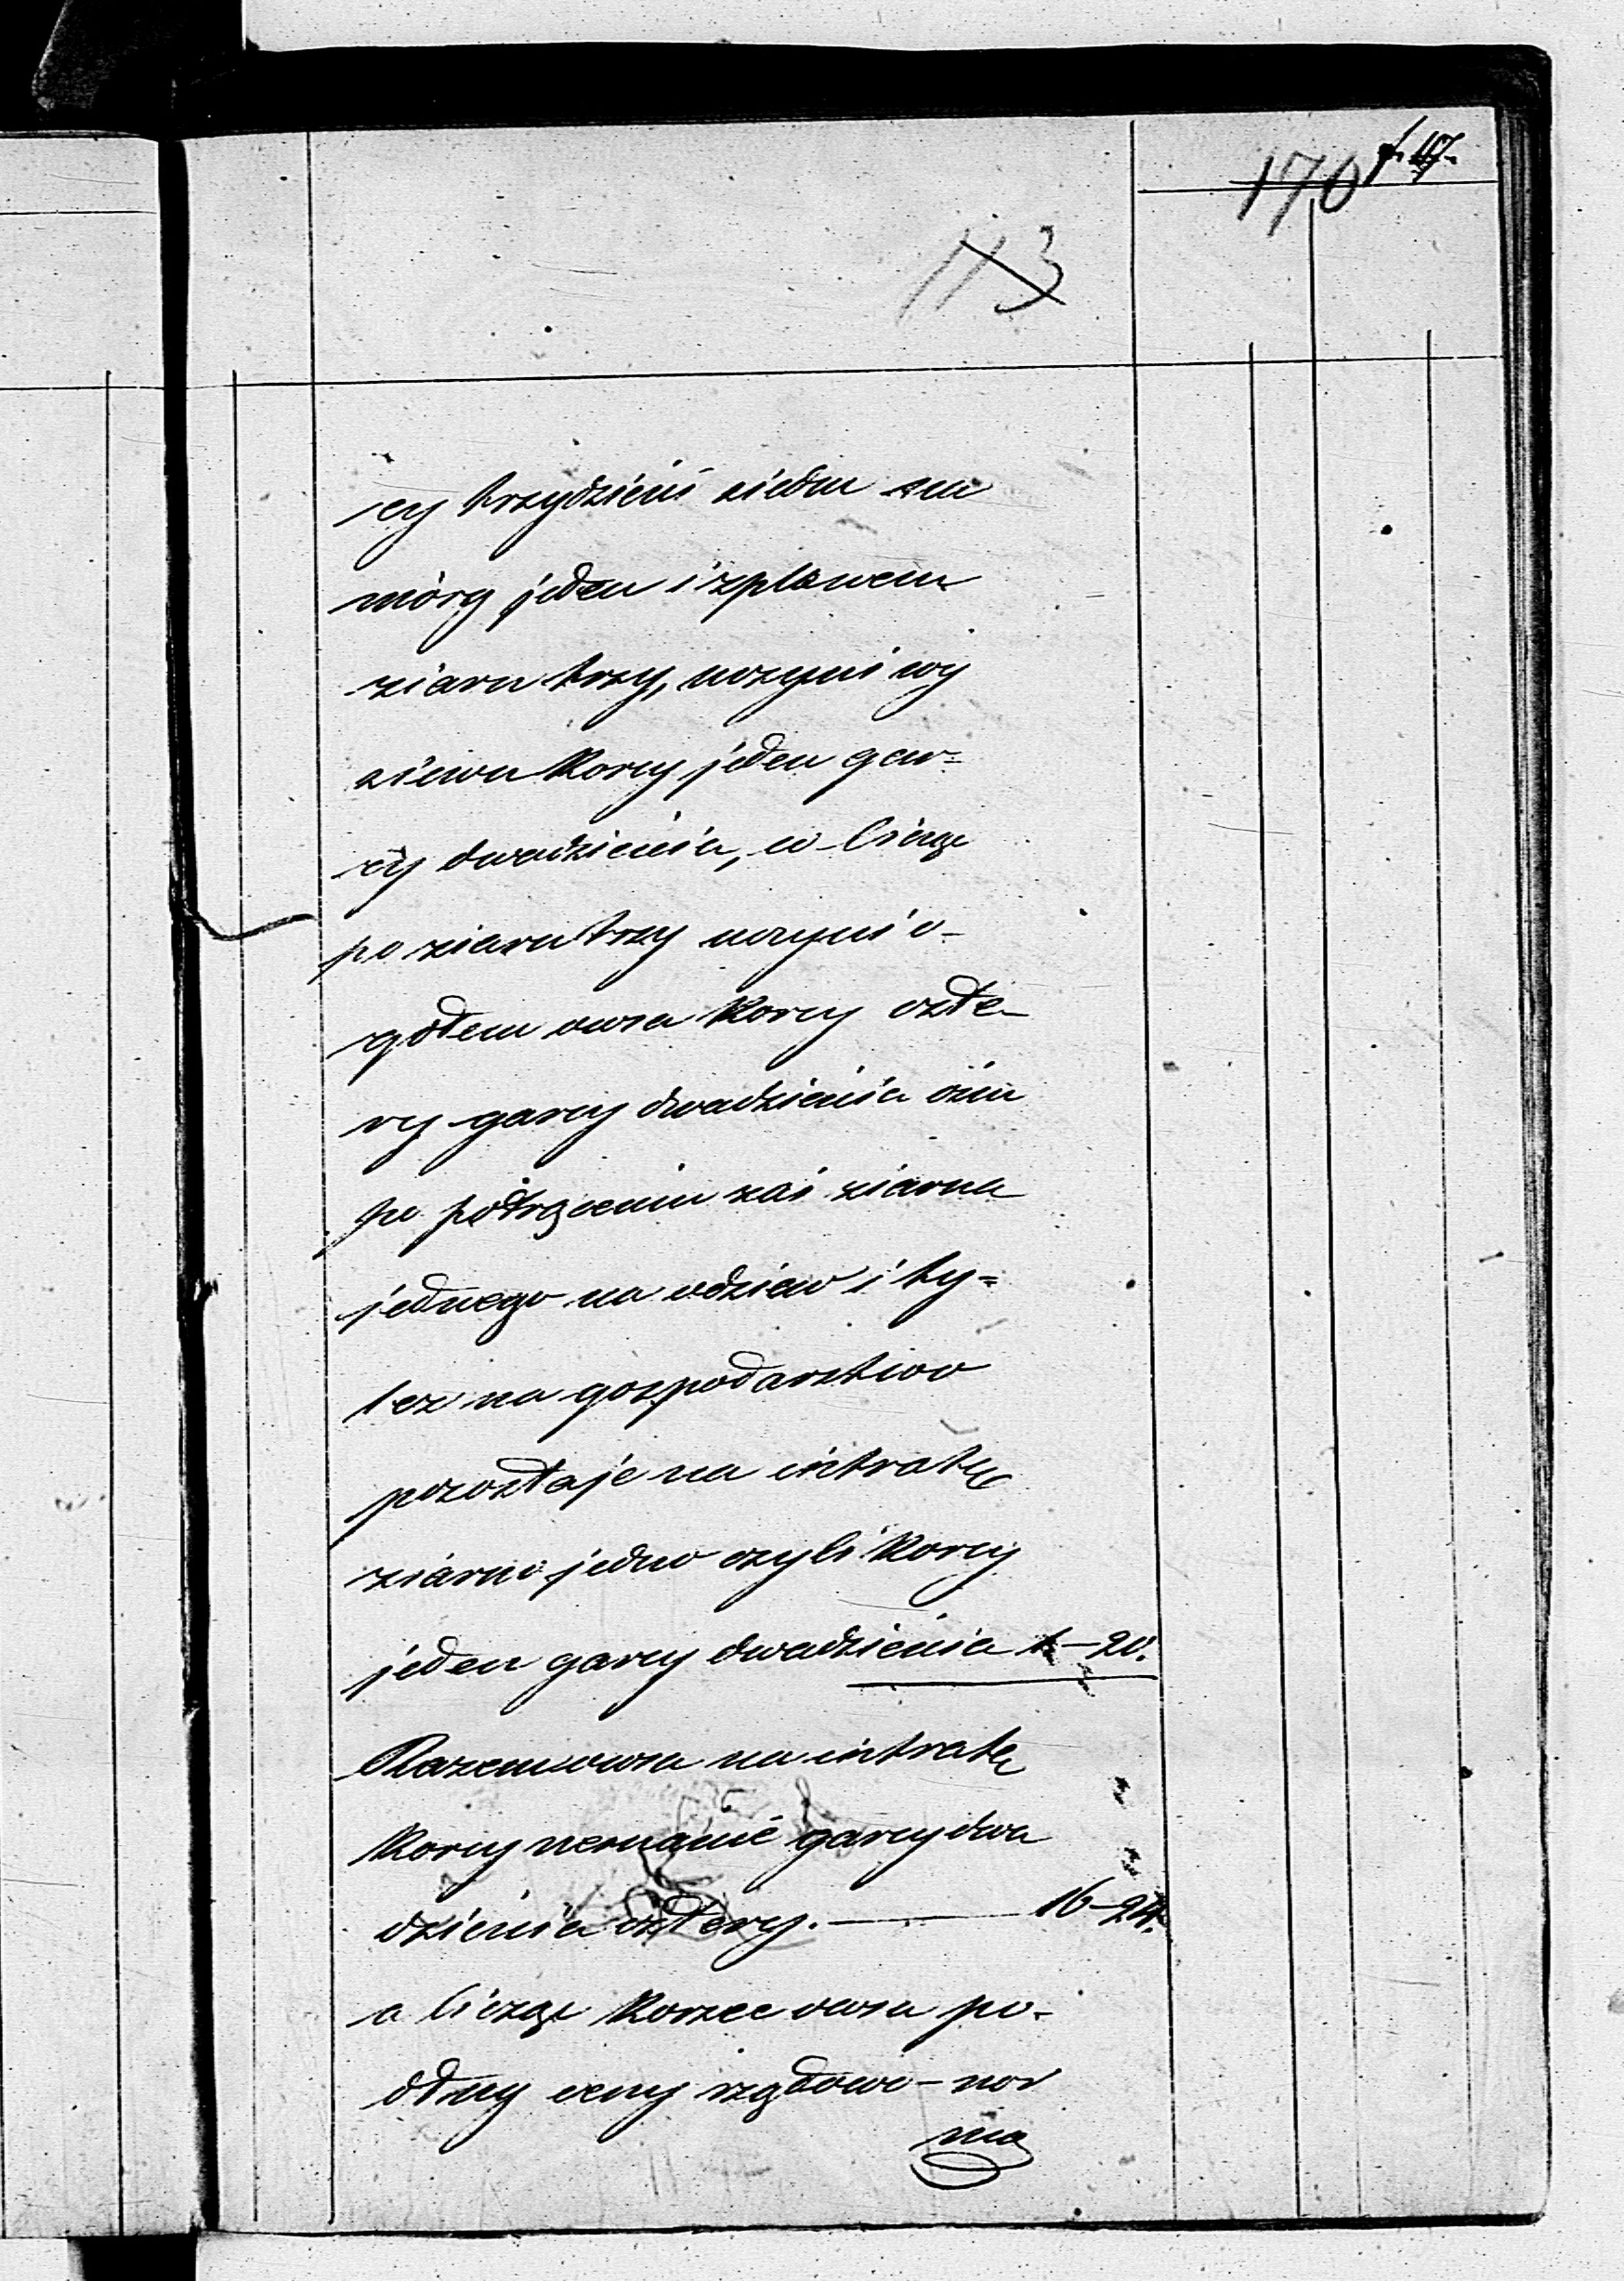 170
113
cy trzydzieści siedm na
mórg jeden i z plonem
ziarn trzy, uczyni wy
siewu korcy jeden gar=
cy dwadzieścia, a licząc
po ziarn trzy uczyni o-
gółem owsa korcy czte-
ry garcy dwadzieścia ośm
po potrąceniu zaś ziarna
jednego na odsiew i ty=
leż na gospodarstwo
pozostaje na intratę
ziarno jedno czyli korcy
jeden garcy dwadzieścia 1-20.
Razem owsa na intratę
korcy szesnaście garcy dwa
dzieścia cztery. — 16-24.
a licząc korzec owsa po-
dług ceny rządowo-nor
ma